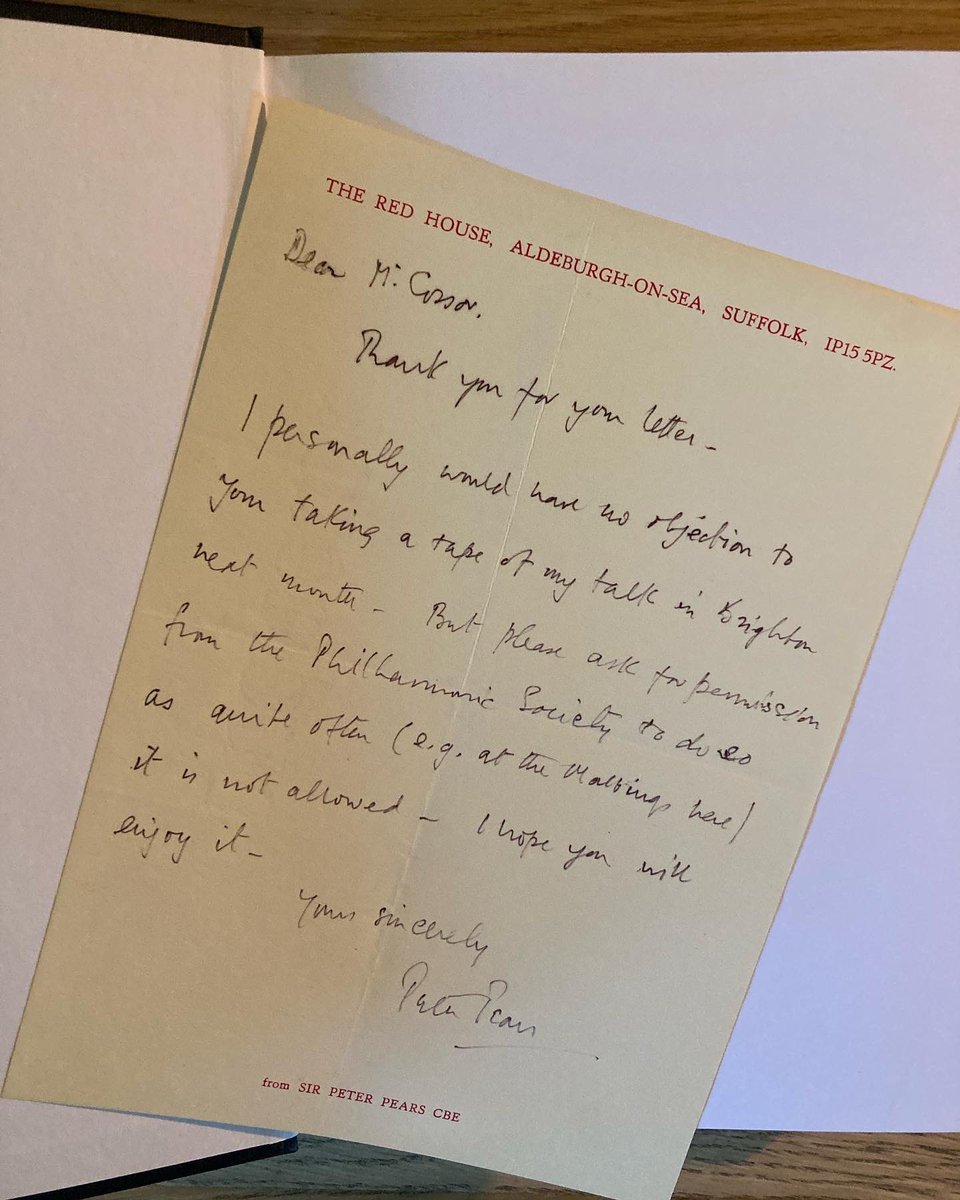 THE RED HOUSE, ALDEBURGH-ON-SEA, SUFFOLK, IP15 5PZ.
Dear Mr. Cossor.
Thank you for your letter –
I personally would have no objection to
your taking a tape of my talk in Brighton
next month – But please ask for permission
from the Philharmonic Society to do so
as quite often (e.g. at the Maltings here)
it is not allowed – I hope you will
enjoy it –
Yours sincerely
Peter Pears
from SIR PETER PEARS CBE